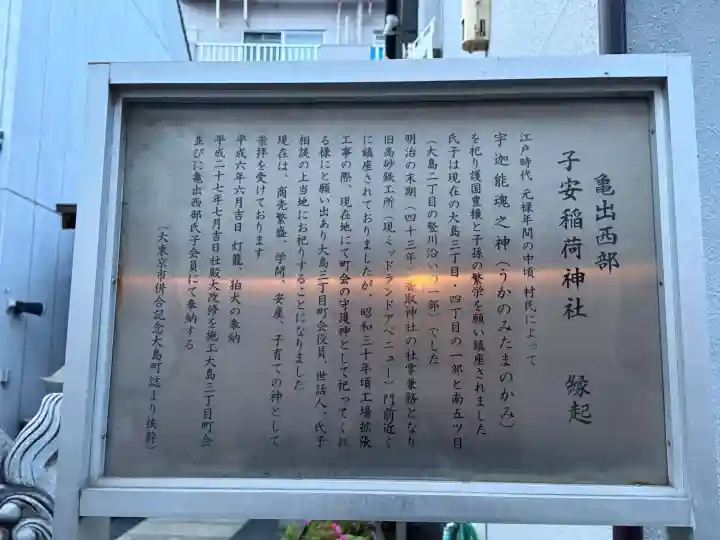 亀出西部
子安稲荷神社 縁起
江戸時代 元禄年間の中頃 村民によって
宇迦能魂之神(うかのみたまのかみ)
を祀り護国豊穣と子孫の繁栄を願い鎮座されました
氏子は現在の大島三丁目・四丁目の一部と南五ツ目
(大島二丁目の竪川沿いの一部)でした
明治の末期(四十三年)香取神社の社掌兼務となり
旧高砂鉄工所(現ミッドランドアベニュー)門前近く
に鎮座されておりましたが、昭和三十年頃工場拡張
工事の際、現在地にて町会の守護神として祀ってくれ
る様にと願い出あり大島三丁目町会役員、世話人、氏子
相談の上当地にお祀りすることになりました
現在は、商売繁盛、学問、安産、子育ての神として
崇拝を受けております
平成六年六月吉日 灯籠、狛犬の奉納
平成二十七年七月吉日社殿大改修を施工大島三丁目町会
並びに亀出西部氏子会員にて奉納する
(大東京市併合記念大島町誌より抜粋)